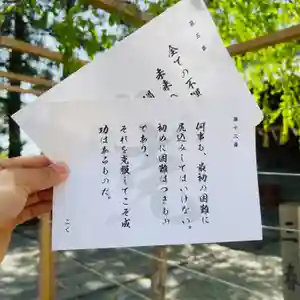 第十二番
何事も、最初の困難に
尻込みしてはいけない。
初めに困難はつきもの
であり、
それを克服してこそ成
功はあるものだ。
全ての不
未来へ